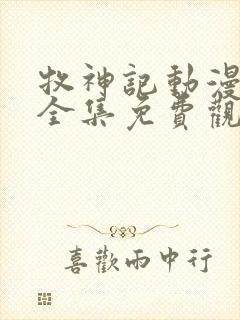 牧神記動漫
全集免費觀
喜歡雨中行